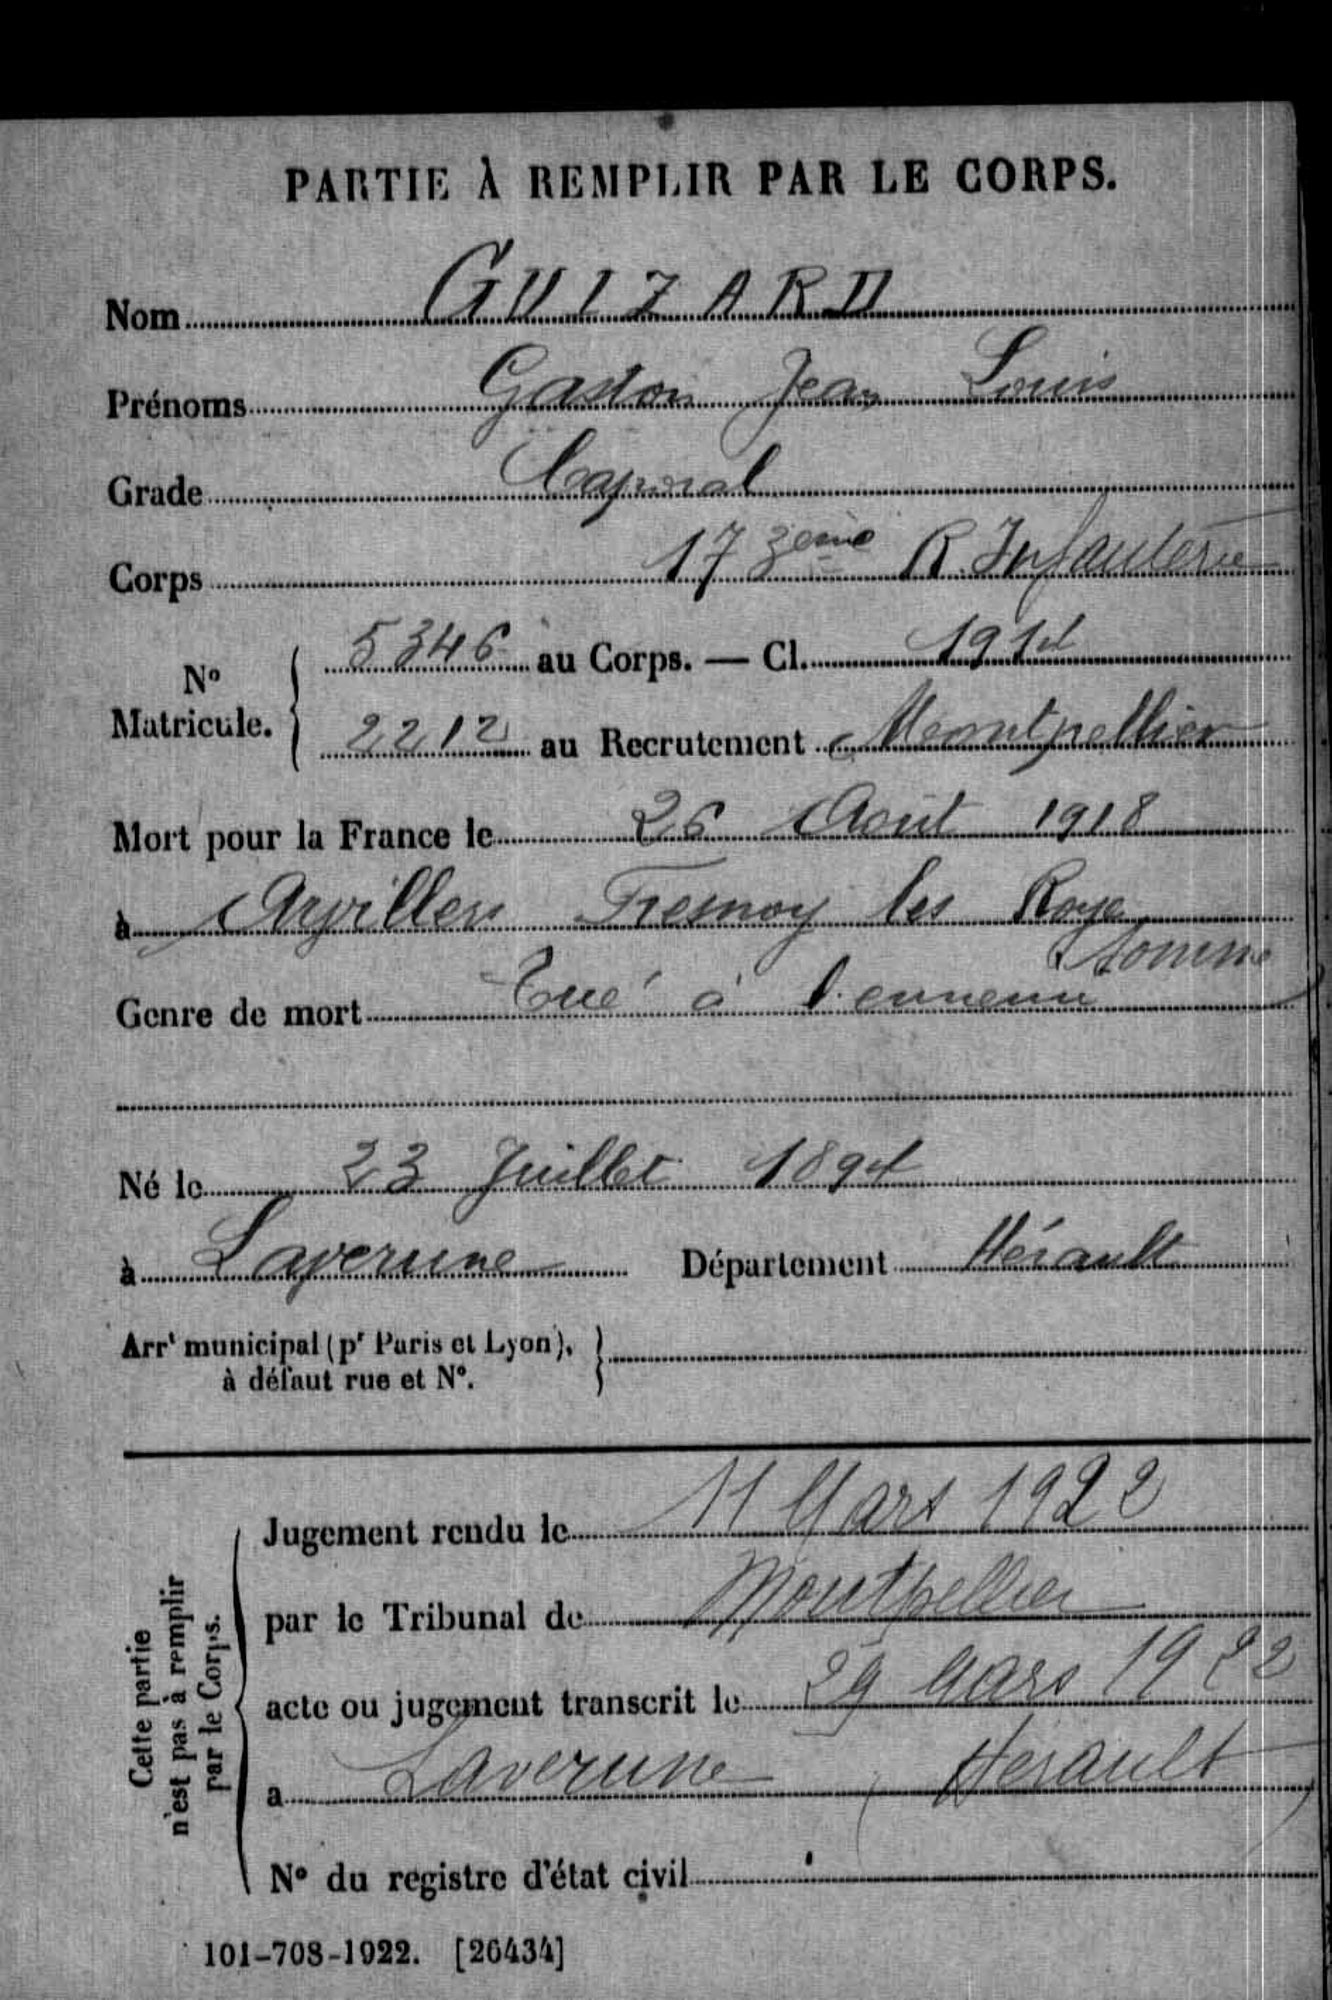 PARTIE À REMPLIR PAR LE CORPS.
Nom GUIZARD
Prénoms Gaston Jean Louis
Grade Caporal
Corps 173eme R. Infanterie
N° Matricule. 5346 au Corps. — Cl. 1914
2212 au Recrutement Montpellier
Mort pour la France le 26 Août 1918
à Arvillers Fresnoy les Roye
Somme
Genre de mort Tué à l'ennemi
Né le 23 Juillet 1894
à Laverune Département Hérault
Arrt municipal (pr Paris et Lyon),
à défaut rue et N°.
Jugement rendu le 11 Mars 1922
par le Tribunal de Montpellier
acte ou jugement transcrit le 29 Mars 1922
a Laverune (Herault)
N° du registre d'état civil
Cette partie
n'est pas à remplir
par le Corps.
101-708-1922. [26434]